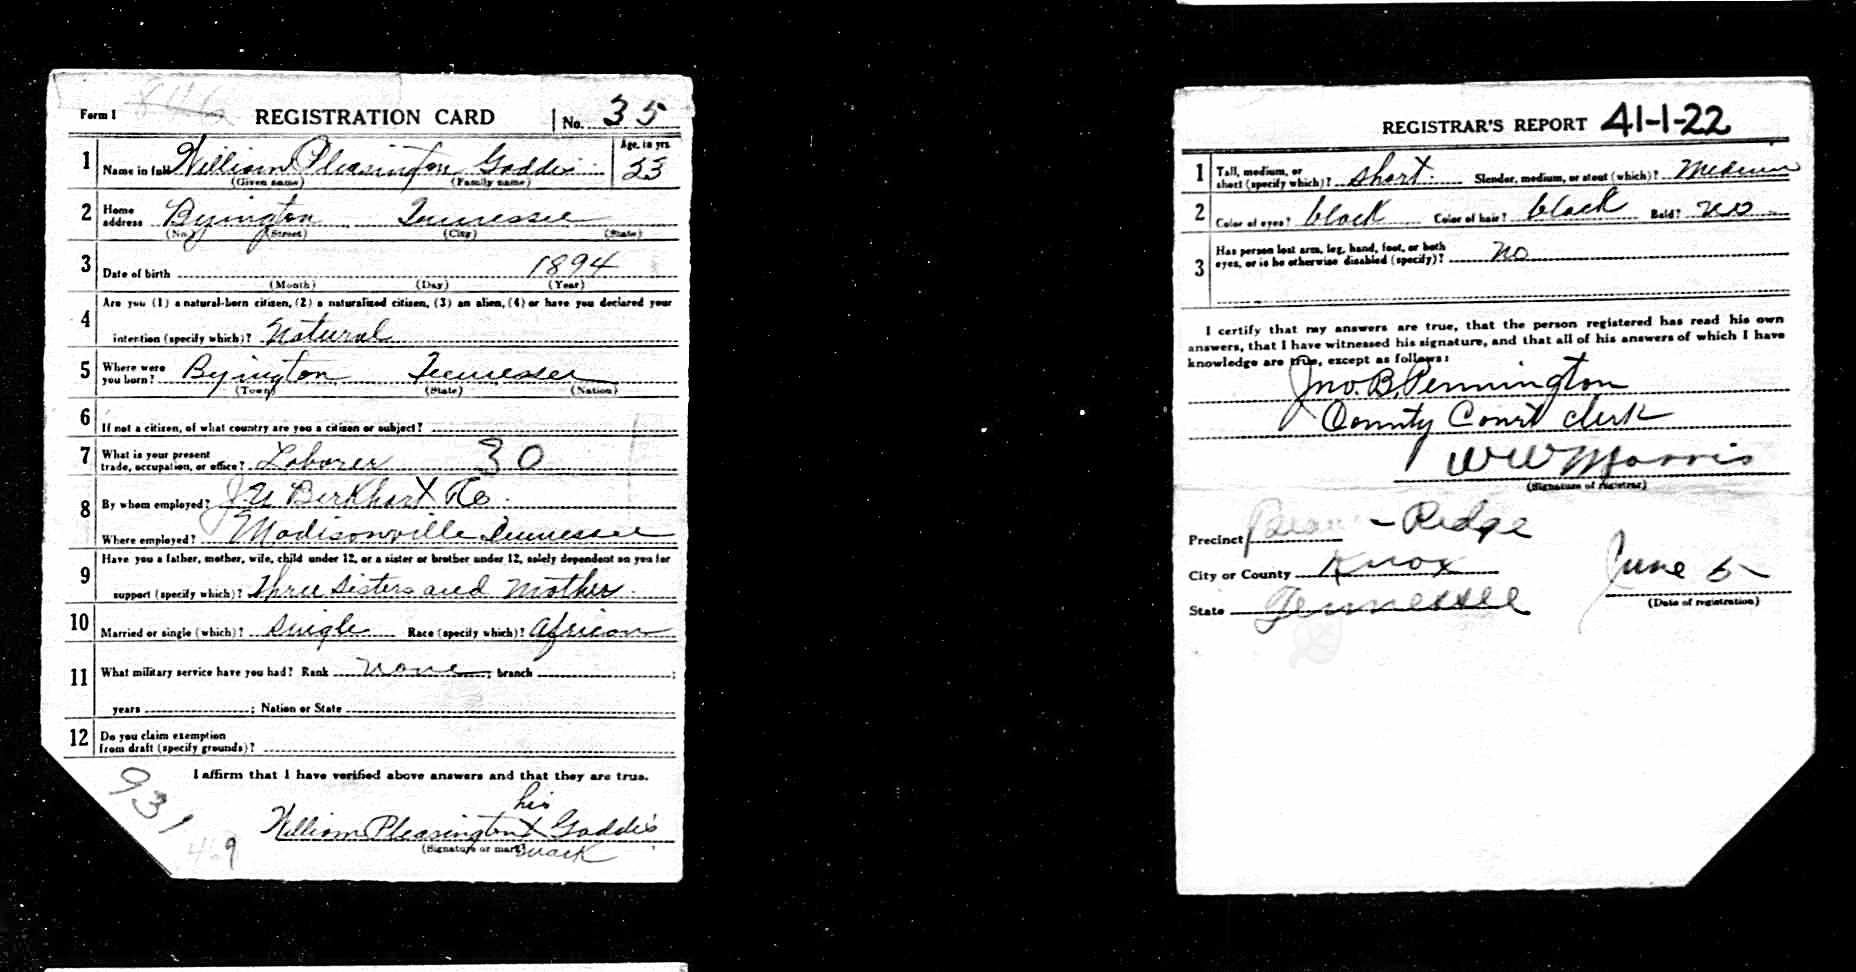 Form 1 846 REGISTRATION CARD No. 35
1 Name in full William Pleasington Gaddis Age, in yrs. 23
(Given name) (Family name)
2 Home address Byington Tennessee
(No.) (Street) (City) (State)
3 Date of birth 1894
(Month) (Day) (Year)
Are you (1) a natural-born citizen, (2) a naturalized citizen, (3) an alien, (4) or have you declared your
4 intention (specify which)? Natural
5 Where were you born? Byington Tennessee
(Town) (State) (Nation)
6 If not a citizen, of what country are you a citizen or subject?
7 What is your present trade, occupation, or office? Laborer 30
8 By whom employed? Berkhart Co.
Where employed? Madisonville Tennessee
Have you a father, mother, wife, child under 12, or a sister or brother under 12, solely dependent on you for
9 support (specify which)? Three sisters and mother
10 Married or single (which)? single Race (specify which)? African
11 What military service have you had? Rank none ; branch ;
years ; Nation or State
12 Do you claim exemption from draft (specify grounds)?
I affirm that I have verified above answers and that they are true.
his
William Pleasington X Gaddis
(Signature or mark) mark
931
9
REGISTRAR'S REPORT 41-1-22
1 Tall, medium, or short (specify which)? short. Slender, medium, or stout (which)? Medium
2 Color of eyes? black Color of hair? black Bald? no
3 Has person lost arm, leg, hand, foot, or both eyes, or is he otherwise disabled (specify)? no
I certify that my answers are true, that the person registered has read his own
answers, that I have witnessed his signature, and that all of his answers of which I have
knowledge are true, except as follows:
Jno. B. Pennington
County Court clerk
W W Morris
(Signature of registrar)
Precinct - Ridge
City or County Knox
State Tennessee
June 5
(Date of registration)